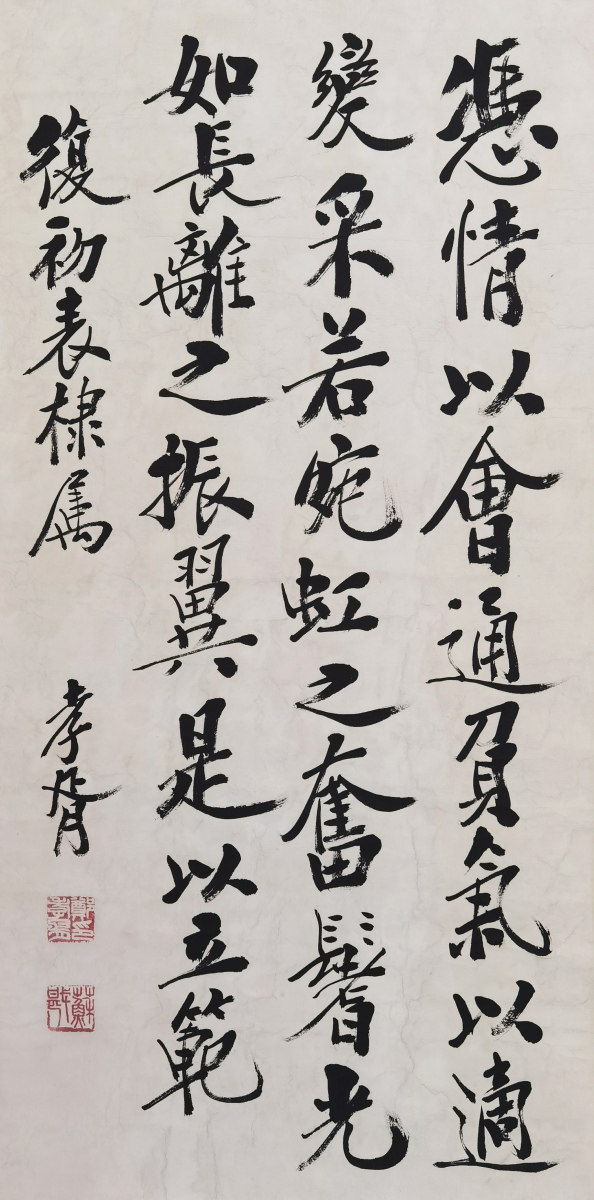 憑情以會通負氣以適
變采若宛虹之奮鬐光
如長離之振翼是以立範
復初表棣属
孝胥
鄭孝胥印
蘇戡